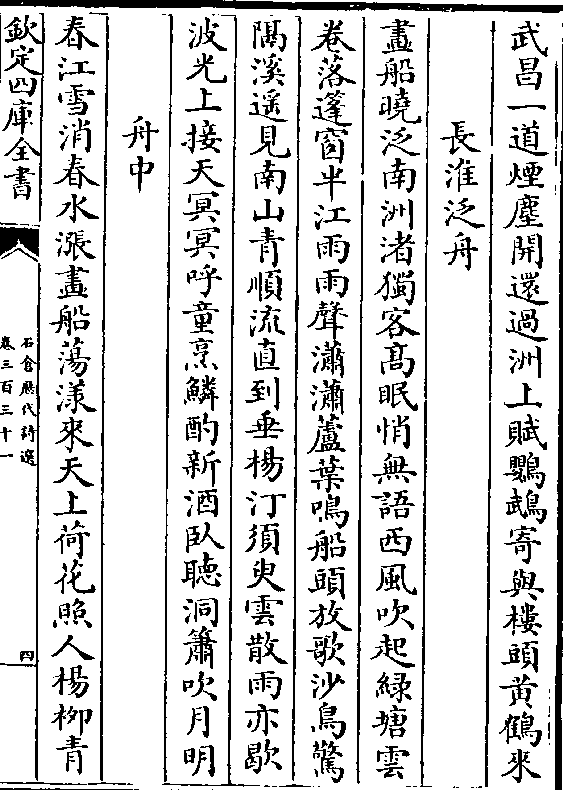 武昌一道煙塵開還過洲上賦鸚鵡寄與樓頭黄鶴來
長淮泛舟
畫船曉泛南洲渚獨客髙眠悄無語西風吹起緑塘雲
卷落篷窗半江雨雨聲瀟瀟蘆葉鳴船頭放歌沙鳥驚
隔溪遥見南山青順流直到垂楊汀須臾雲散雨亦歇
波光上接天冥冥呼童烹鱗酌新酒臥聽洞簫吹月明
舟中
春江雪消春水漲畫船蕩漾來天上荷花照人楊柳青
欽定四庫全書
石倉歷代詩選
卷三百三十一
四